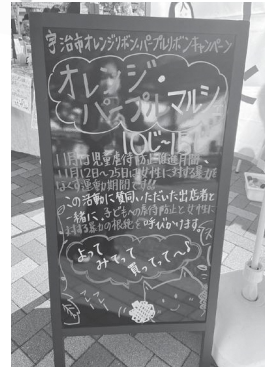 宇治市オレンジリボン・パープルリボンキャンペーン
オレンジ・
パープルマルシェ
10じ~15じ
11月は児童虐待防止推進月間、
11月12日~25日は女性に対する暴力を
なくす運動期間です!!
この活動に賛同いただいた出店者と
一緒に、子どもへの虐待防止と女性に
対する暴力の根絶を呼びかけます。
よって
みもって
買ってって~♪